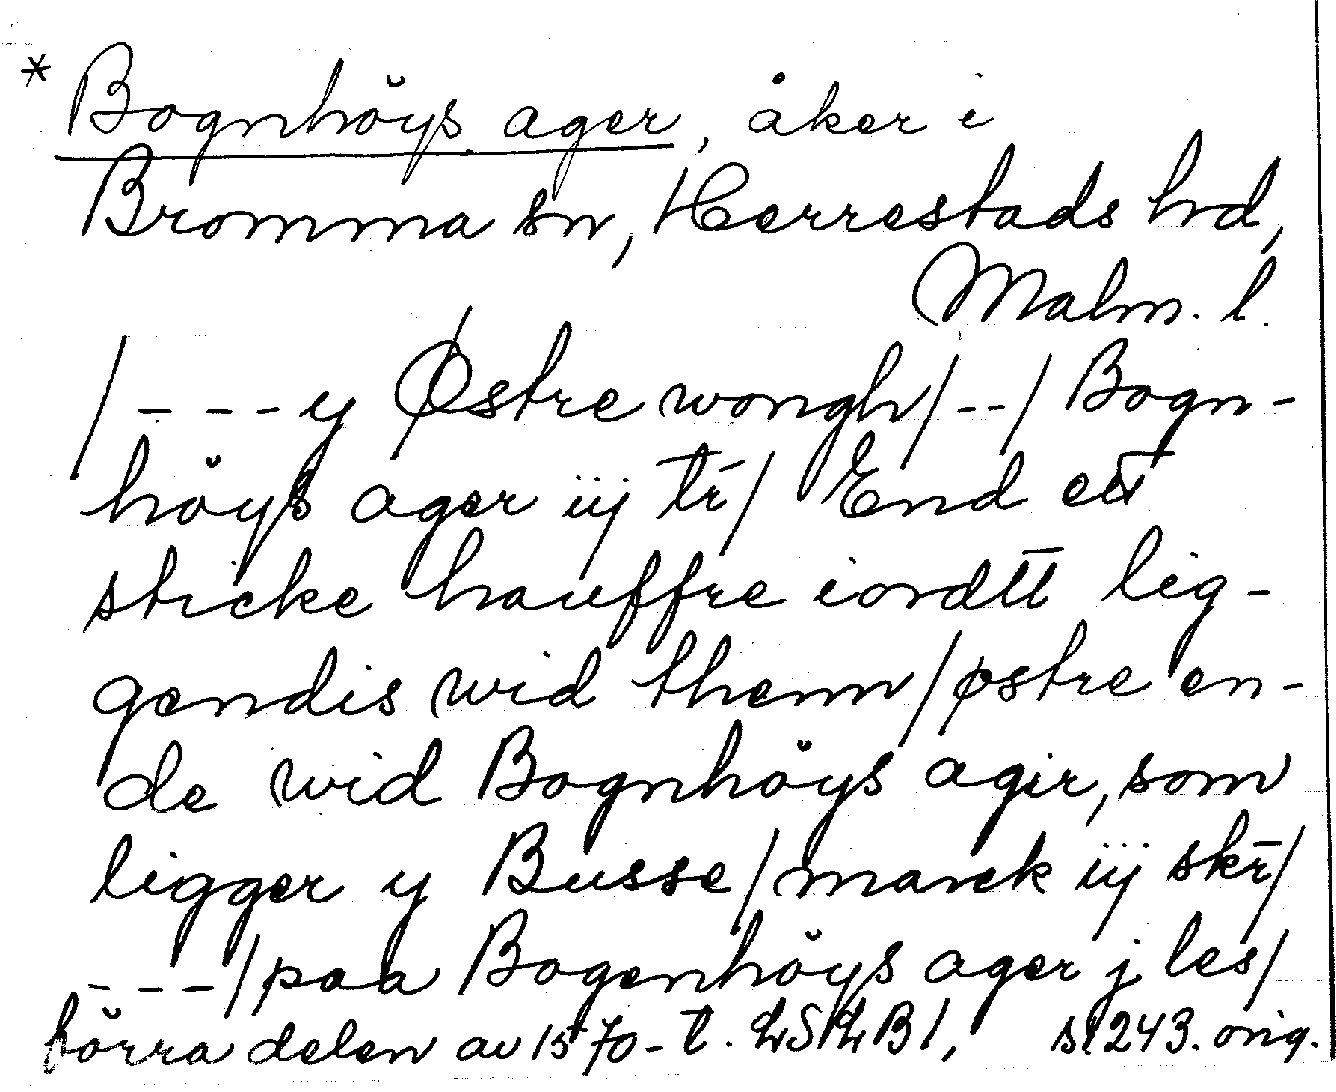 * Bognhöys ager, åker i
Bromma sn, Herrestads hd,
Malm. l.
/---y Østre wongh/--/Bogn-
höys ager iij tr̄/ End ett
sticke hauffre iordtt lig-
gendis wid them/østre en-
de wid Bognhöys agir, som
ligger y Busse/marck iij skr̄/
---/paa Bogenhöys ager j les/
förra delen av 1570-t. LSLB 1, s 243. orig.